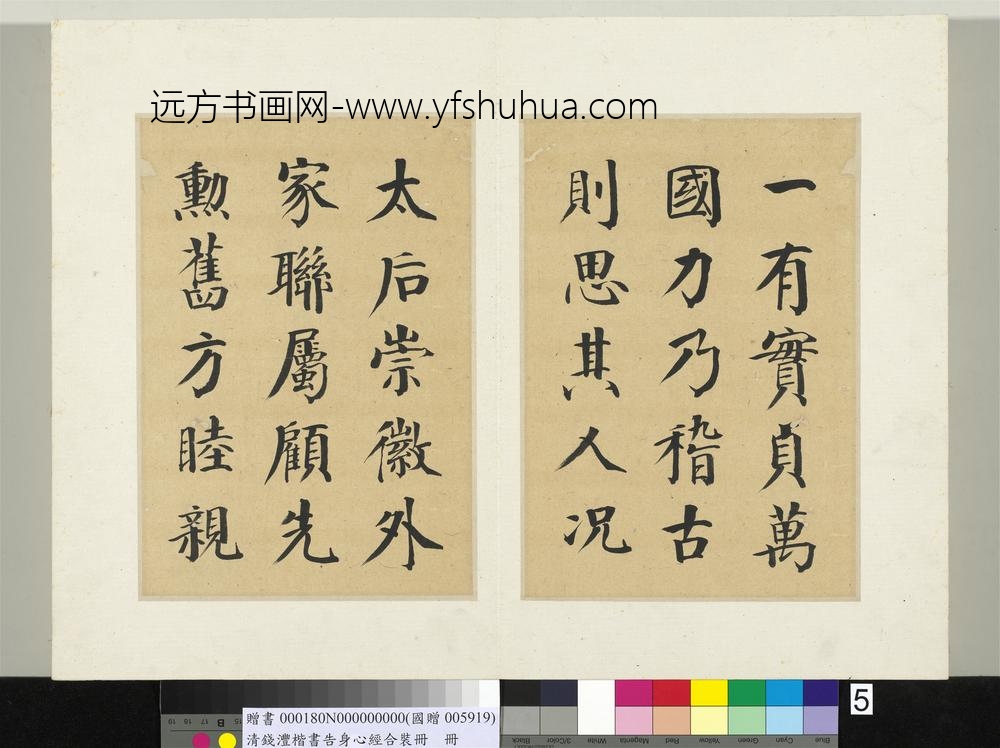 远方书画网-www.yfshuhua.com
一有實貞萬
國力乃稽古
則思其人况
太后崇徽外
家聯屬顧先
勳舊方睦親
贈書 000180N000000000(國贈 005919)
清錢澧楷書告身心經合裝冊 冊
5
19 18 17 16 B 15
Black
3/Color
White
Magenta
Red
Yellow
Green
Cyan
Blue